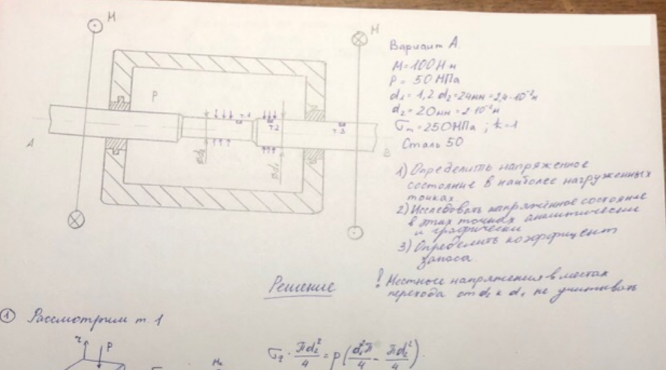 M
M
P
т.1
т.2
т.3
A
B
⌀d₂
⌀d₁
Вариант А.
M=100 Н м
P = 50 МПа
d₁ = 1,2 d₂ = 24мм = 2,4·10⁻²м
d₂ = 20мм = 2·10⁻²м
σт = 250 МПа ; k=1
Сталь 50
1) Определить напряженное
состояние в наиболее нагруженных
точках
2) Исследовать напряжённое состояние
в этих точках аналитически
и графически
3) Определить коэффициент
запаса
! Местные напряжения в местах
перехода от d₂ к d₁ не учитывать
Решение
① Рассмотрим т. 1
P
σz · πd₂²/4 = p(d₁²π/4 - πd₂²/4).